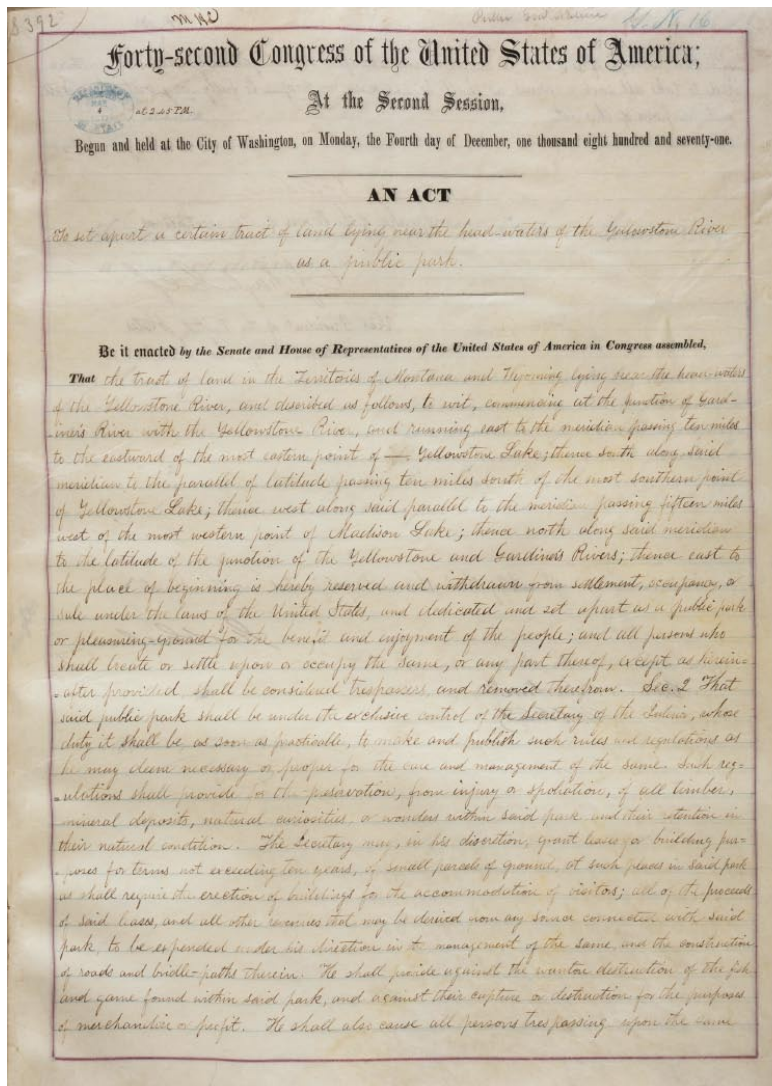 8392
Forty-second Congress of the United States of America;
At the Second Session,
at 2.45 P.M.
Begun and held at the City of Washington, on Monday, the Fourth day of December, one thousand eight hundred and seventy-one.
AN ACT
To set apart a certain tract of land lying near the head-waters of the Yellowstone River
as a public park.
Be it enacted by the Senate and House of Representatives of the United States of America in Congress assembled,
That the tract of land in the Territories of Montana and Wyoming lying near the head-waters
of the Yellowstone River, and described as follows, to wit, commencing at the junction of Gard-
-iner's River with the Yellowstone River, and running east to the meridian passing ten miles
to the eastward of the most eastern point of Yellowstone Lake; thence south along said
meridian to the parallel of latitude passing ten miles south of the most southern point
of Yellowstone Lake; thence west along said parallel to the meridian passing fifteen miles
west of the most western point of Madison Lake; thence north along said meridian
to the latitude of the junction of the Yellowstone and Gardiner's Rivers; thence east to
the place of beginning is hereby reserved and withdrawn from settlement, occupancy, or
sale under the laws of the United States, and dedicated and set apart as a public park
or pleasuring-ground for the benefit and enjoyment of the people; and all persons who
shall locate or settle upon or occupy the same, or any part thereof, except as herein-
-after provided, shall be considered trespassers, and removed therefrom. Sec. 2 That
said public park shall be under the exclusive control of the Secretary of the Interior, whose
duty it shall be, as soon as practicable, to make and publish such rules and regulations as
he may deem necessary or proper for the care and management of the same. Such reg-
-ulations shall provide for the preservation, from injury or spoliation, of all timber,
mineral deposits, natural curiosities, or wonders within said park and their retention in
their natural condition. The Secretary may, in his discretion, grant leases for building pur-
-poses for terms not exceeding ten years, of small parcels of ground, at such places in said park
as shall require the erection of buildings for the accommodation of visitors; all of the proceeds
of said leases, and all other revenues that may be derived from any source connected with said
park, to be expended under his direction in the management of the same, and the construction
of roads and bridle-paths therein. He shall provide against the wanton destruction of the fish
and game found within said park, and against their capture or destruction for the purposes
of merchandise or profit. He shall also cause all persons trespassing upon the same